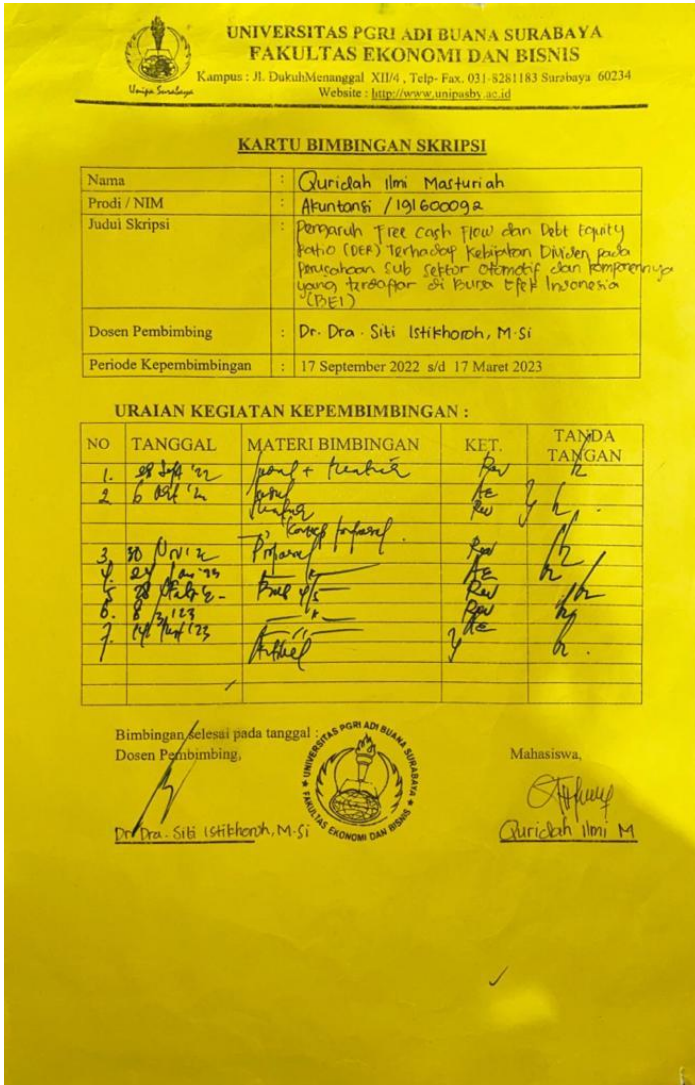 UNIVERSITAS PGRI ADI BUANA SURABAYA
FAKULTAS EKONOMI DAN BISNIS
Kampus : Jl. DukuhMenanggal XII/4 , Telp- Fax. 031-8281183 Surabaya 60234
Website : http://www.unipasby.ac.id
Unipa Surabaya
KARTU BIMBINGAN SKRIPSI
Nama : Quridah Ilmi Masturiah
Prodi / NIM : Akuntansi / 191600092
Judul Skripsi : Pengaruh Free Cash Flow dan Debt Equity
Ratio (DER) Terhadap Kebijakan Dividen pada
Perusahaan Sub Sektor Otomotif dan Komponennya
yang terdaftar di Bursa Efek Indonesia
(BEI)
Dosen Pembimbing : Dr. Dra. Siti Istikhoroh, M.Si
Periode Kepembimbingan : 17 September 2022 s/d 17 Maret 2023
URAIAN KEGIATAN KEPEMBIMBINGAN :
NO TANGGAL MATERI BIMBINGAN KET. TANDA TANGAN
1. Rev
2 6 Rev
3 30 Proposal Rev
4.
5 28 Bab 4/5 Rev
6. 8/3 '23 Rev
7. Artikel
Bimbingan selesai pada tanggal :
Dosen Pembimbing, Mahasiswa,
UNIVERSITAS PGRI ADI BUANA SURABAYA
FAKULTAS EKONOMI DAN BISNIS
Dr. Dra. Siti Istikhoroh, M.Si Quridah Ilmi M